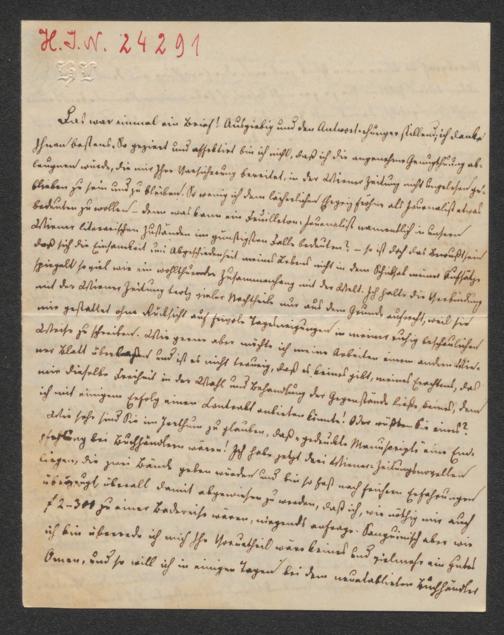 H.I.N. 24291
Das war einmal ein Brief! Ausgiebig und den Antwort-hunger stillend, ich danke
Ihnen bestens. So geziert und affektirt bin ich nicht, daß ich die angenehme Genugthuung ab-
leugnen würde, die mir Ihre Versicherung bereitet, in der Wiener Zeitung nicht ungelesen ge-
blieben zu sein und zu bleiben. So wenig ich dem lächerlichen Ehrgeiz fröhne als Journalist etwas
bedeuten zu wollen – denn was kann ein Feuilleton-Journalist namentlich in unsern
Wiener literarischen Zuständen im günstigsten Falle bedeuten? – so ist doch das Bewußtsein
daß sich die Einsamkeit und Abgeschiedenheit meines Lebens nicht in dem Schicksal meiner Aufsätze
spiegelt soviel wie ein wohlthuender Zusammenhang mit der Welt. Ich halte die Verbindung
mit der Wiener Zeitung trotz vieler Nachtheile nur aus dem Grunde aufrecht, weil sie
mir gestattet ohne Rücksicht auf frivole Tagesneigungen in meiner ruhig beschaulichen
Weise zu schreiben. Wie gerne aber möchte ich meine Arbeiten einem andern Wie-
ner Blatt überlassen und ist es nicht traurig, daß es keines gibt, meines Erachtens, das
mir dieselbe Freiheit in der Wahl und Behandlung der Gegenstände ließe, keines, dem
ich mit einigem Erfolg einen Contrakt anbieten könnte! Oder wüßten Sie eines?
Wie sehr sind Sie im Irrthum zu glauben, daß gedruckte Manuscripte eine Em-
pfehlung bei Buchhändlern wären! Ich habe jetzt drei Wiener-Zeitungsnovellen
liegen, die zwei Bände geben würden und bin so fest nach frühern Erfahrungen
überzeugt, überall damit abgewiesen zu werden, daß ich, wie nöthig mir auch
f 2–300 zu einer Badereise wären, nirgends anfrage. Sanguinisch aber wie
ich bin überrede ich mich Ihr Vorurtheil wäre keines und vielmehr ein gutes
Omen, und so will ich in einigen Tagen bei dem neuetablirten Buchhändler